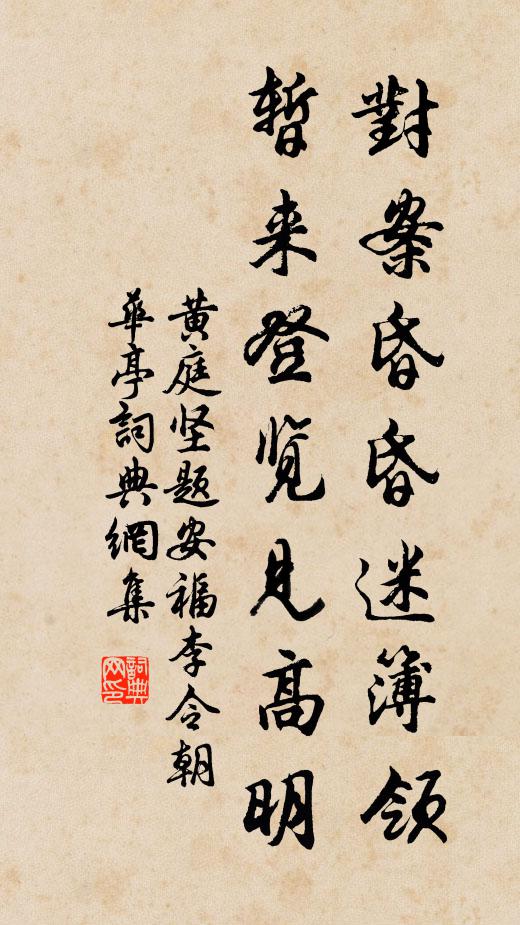 對案昏昏迷簿領
暫来登覽見高明
黄庭坚题安福李令朝
華亭詞典網集
詞典网印